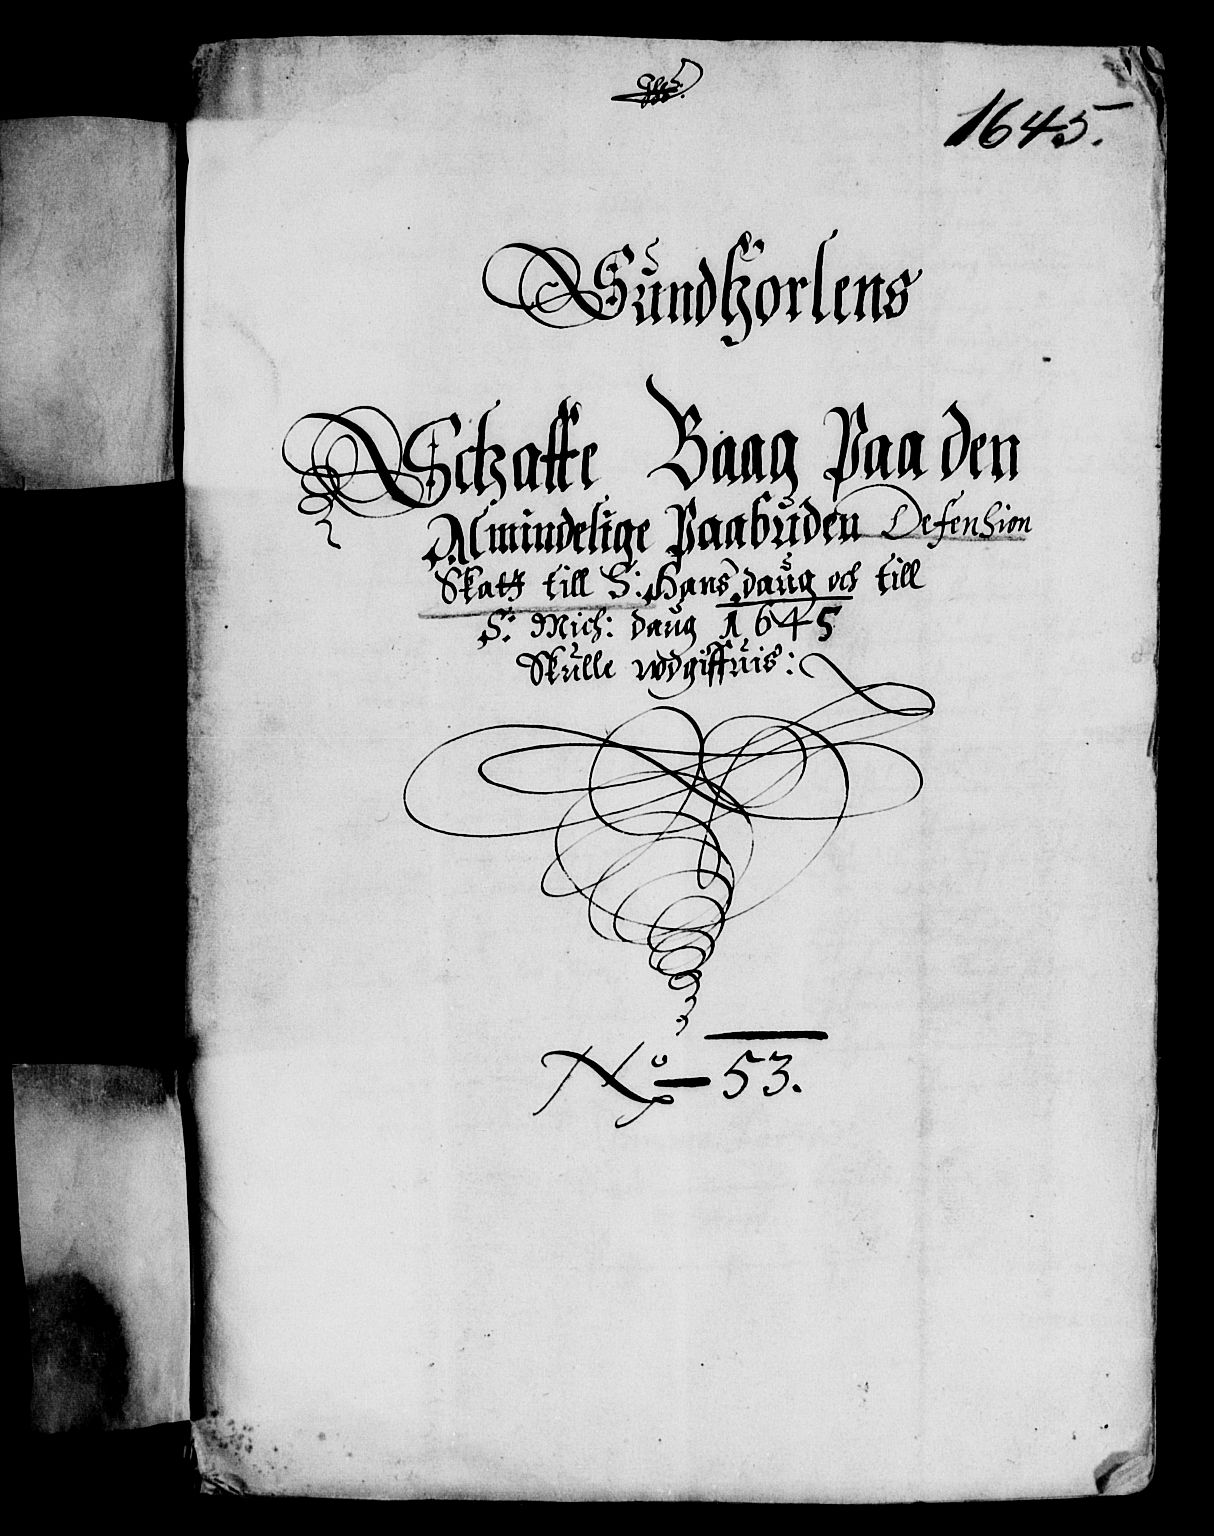 1645.
Sundhorlens
Schatte Baag Paa den
Almindelige Paabuden Defension
Skatt till S: Hans daug och till
S: Mich: daug 1645
Skulle wdgiffuis:
No 53.